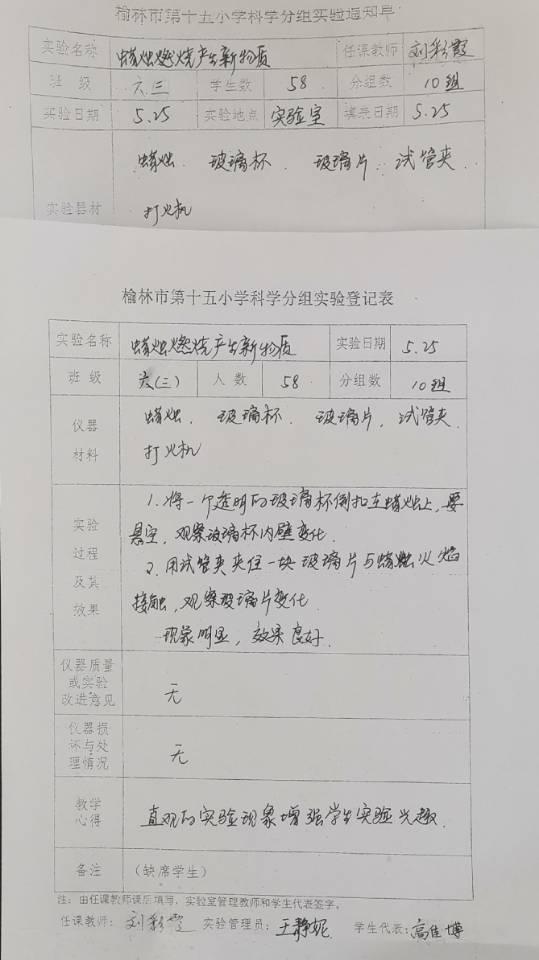 榆林市第十五小学科学分组实验通知单
实验名称 蜡烛燃烧产生新物质 任课教师 刘彩霞
班 级 六.三 学生数 58 分组数 10组
实验日期 5.25 实验地点 实验室 填表日期 5.25
蜡烛. 玻璃杯. 玻璃片. 试管夹.
实验器材 打火机
榆林市第十五小学科学分组实验登记表
实验名称 蜡烛燃烧产生新物质 实验日期 5.25
班 级 六(三) 人 数 58 分组数 10组
仪器 蜡烛. 玻璃杯. 玻璃片. 试管夹.
材料 打火机
1.将一个透明的玻璃杯倒扣在蜡烛上,要
实验 悬空,观察玻璃杯内壁变化.
过程 2.用试管夹夹住一块玻璃片与蜡烛火焰
及其 接触,观察玻璃片变化.
效果 现象明显,效果良好.
仪器质量
或实验 无
改进意见
仪器损
坏与处 无
理情况
教学
心得 直观的实验现象增强学生实验兴趣.
备注 (缺席学生)
注:由任课教师课后填写,实验室管理教师和学生代表签字。
任课教师: 刘彩霞 实验管理员: 王静妮 学生代表: 高佳博